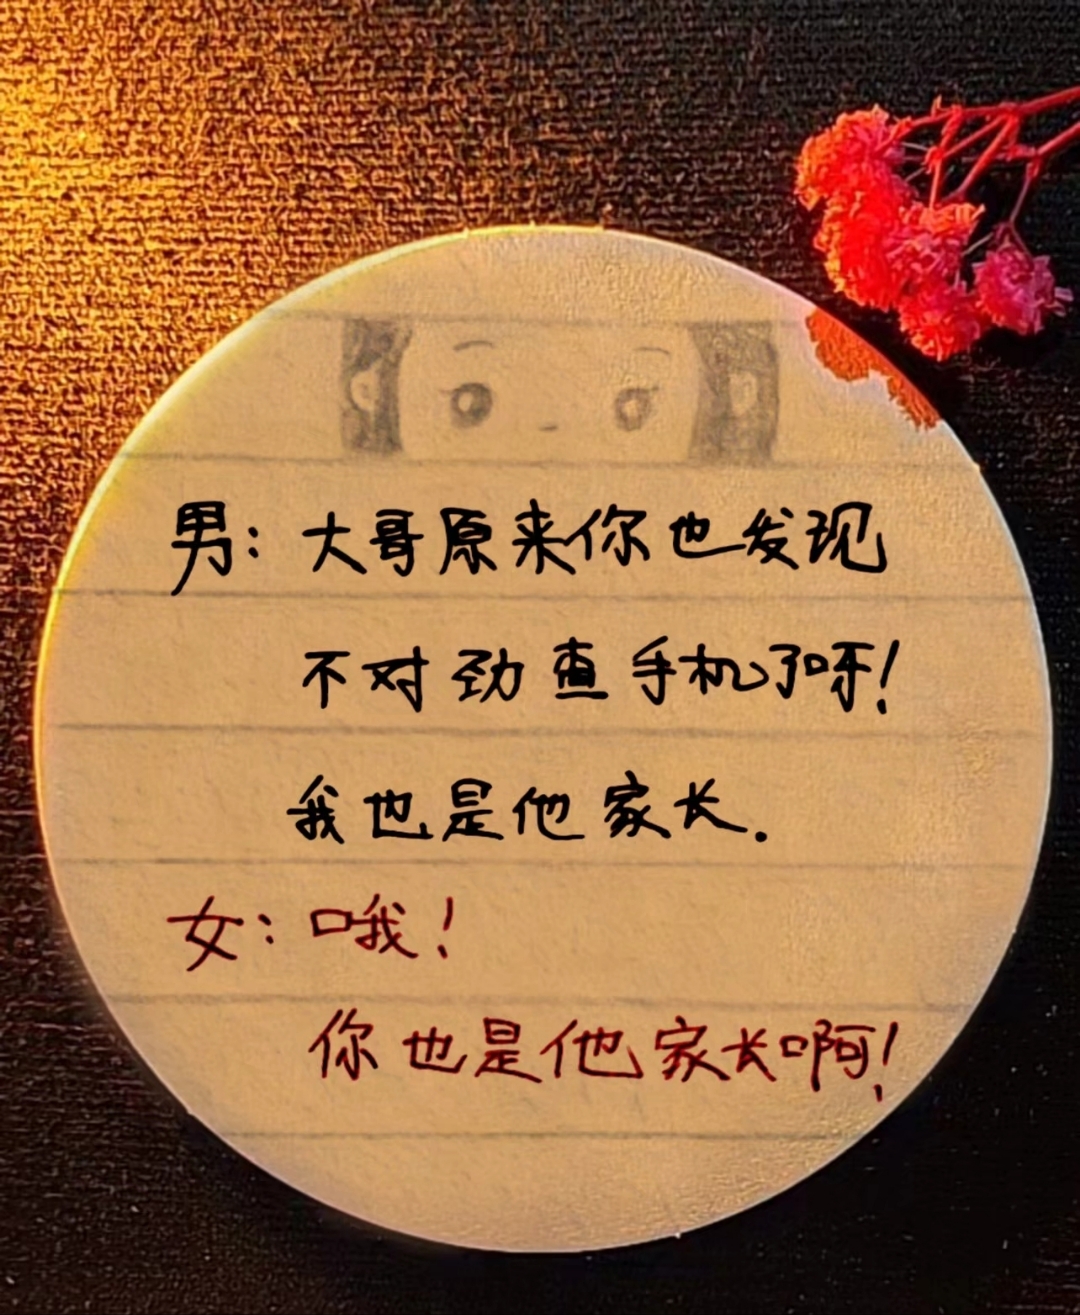 男：大哥原来你也发现
不对劲查手机了呀！
我也是他家长.
女：哦！
你也是他家长啊！